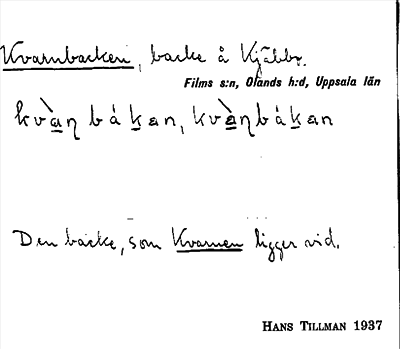 Kvarnbacken, backe å Kjäbbo.
Films s:n, Olands h:d, Uppsala län
kvàn båkan, kvànbåkan
Den backe, som Kvarnen ligger vid.
HANS TILLMAN 1937